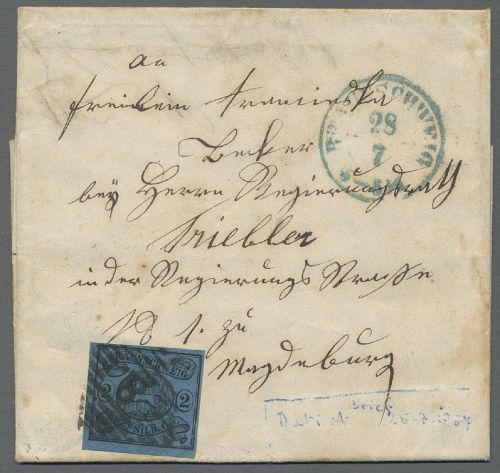 An
Freilein Francieska
Becker
bey Herrn Regierungsrath
Triebler
in der Regierungs Strasse
No 1. zu
Magdeburg
BRAUNSCHWEIG
28
7
BRAUNSCHWEIG
2 2
SILB. GR.
Brief
Datirt